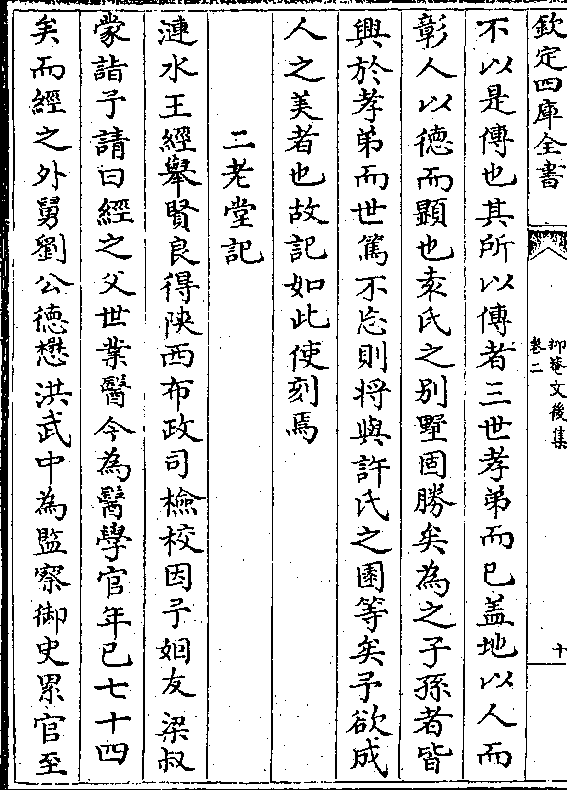 欽定四庫全書
抑菴文後集
卷二
十
不以是傳也其所以傳者三世孝弟而已盖地以人而
彰人以德而顯也袁氏之别墅固勝矣為之子孫者皆
興於孝弟而世篤不忘則將與許氏之園等矣予欲成
人之美者也故記如此使刻焉
二老堂記
漣水王經舉賢良得陜西布政司檢校因予姻友梁叔
蒙詣予請曰經之父世業醫今為醫學官年已七十四
矣而經之外舅劉公德懋洪武中為監察御史累官至